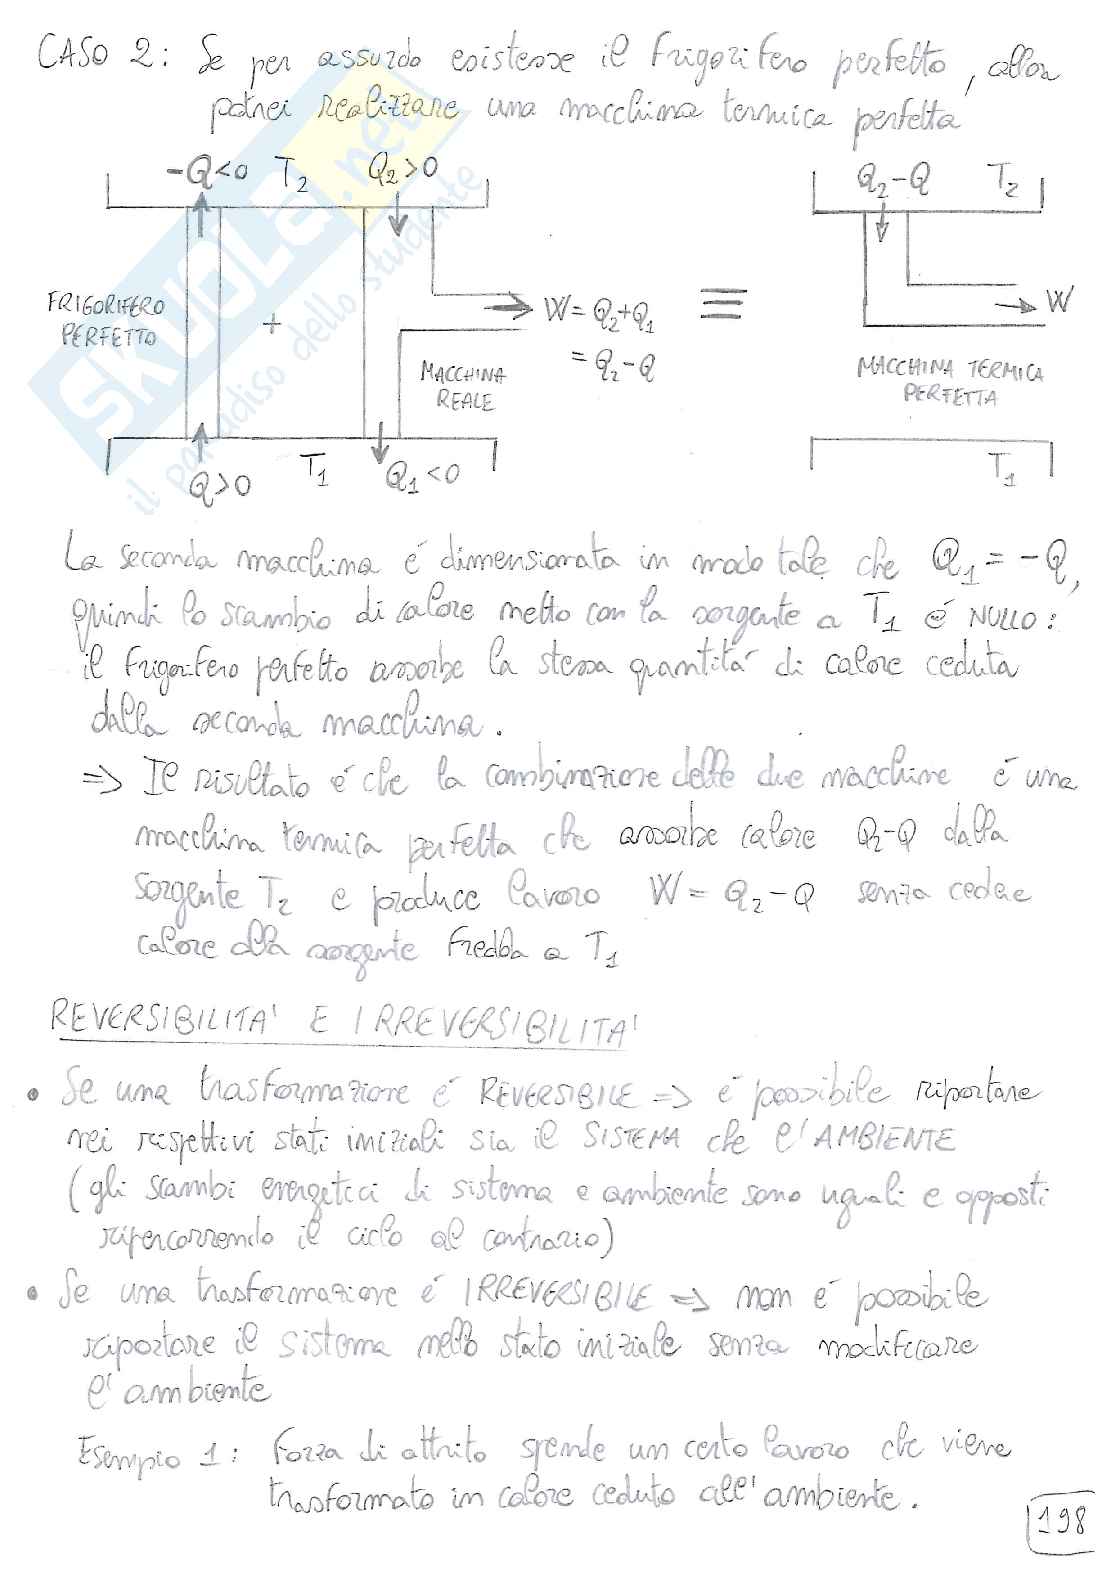 CASO 2: Se per assurdo esistesse il frigorifero perfetto, allora
potrei realizzare una macchina termica perfetta
-Q<0 T2 Q2>0
Q2-Q T2
FRIGORIFERO
PERFETTO
+
W = Q2+Q1
= Q2-Q
≡
W
MACCHINA
REALE
MACCHINA TERMICA
PERFETTA
Q>0 T1 Q1<0
T1
La seconda macchina é dimensionata in modo tale che Q1 = -Q,
quindi lo scambio di calore netto con la sorgente a T1 é NULLO:
il frigorifero perfetto assorbe la stessa quantitá di calore ceduta
dalla seconda macchina.
=> Il risultato é che la combinazione delle due macchine é una
macchina termica perfetta che assorbe calore Q2-Q dalla
sorgente T2 e produce lavoro W = Q2-Q senza cedere
calore alla sorgente fredda a T1
REVERSIBILITA' E IRREVERSIBILITA'
• Se una trasformazione é REVERSIBILE => é possibile riportare
nei rispettivi stati iniziali sia il SISTEMA che l'AMBIENTE
(gli scambi energetici di sistema e ambiente sono uguali e opposti
ripercorrendo il ciclo al contrario)
• Se una trasformazione é IRREVERSIBILE => non é possibile
riportare il sistema nello stato iniziale senza modificare
l'ambiente
Esempio 1: Forza di attrito spende un certo lavoro che viene
trasformato in calore ceduto all'ambiente.
198
SKUOLA.net
il paradiso dello studente